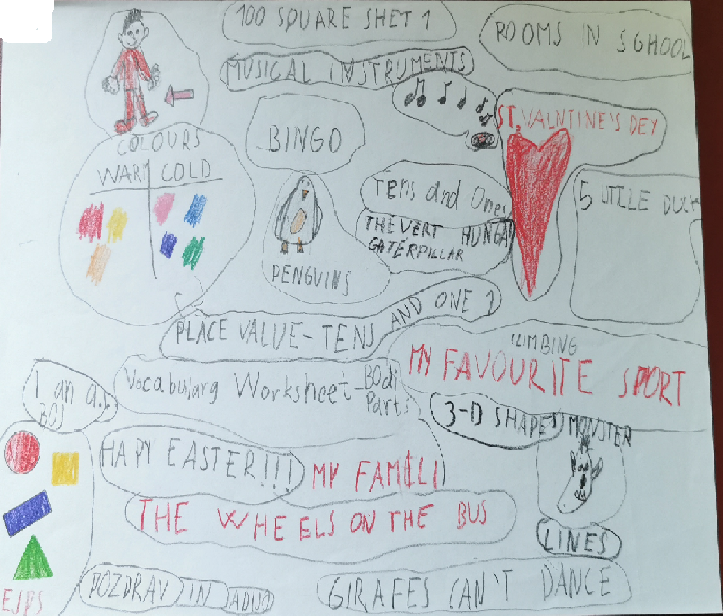 100 SQUARE SHET 1
ROOMS IN SCHOOL
MUSICAL INSTRUMENTS
ST. VALNTINE'S DEY
COLOURS
WARM COLD
BINGO
Tens and Ones
5 LITLE DUCK
THE VERY HUNGA
CATERPILLAR
PENGVINS
PLACE VALUE-TENS AND ONE
CLIMBING
MY FAVOURITE SPORT
I am a
Vocabulary Worksheet-BODi
Parts
3-D SHAPES
MONSTER
HAPY EASTER!!!
MY FAMILI
THE WHEELS ON THE BUS
LINES
POZDRAV IN
GIRAFES CAN'T DANCE